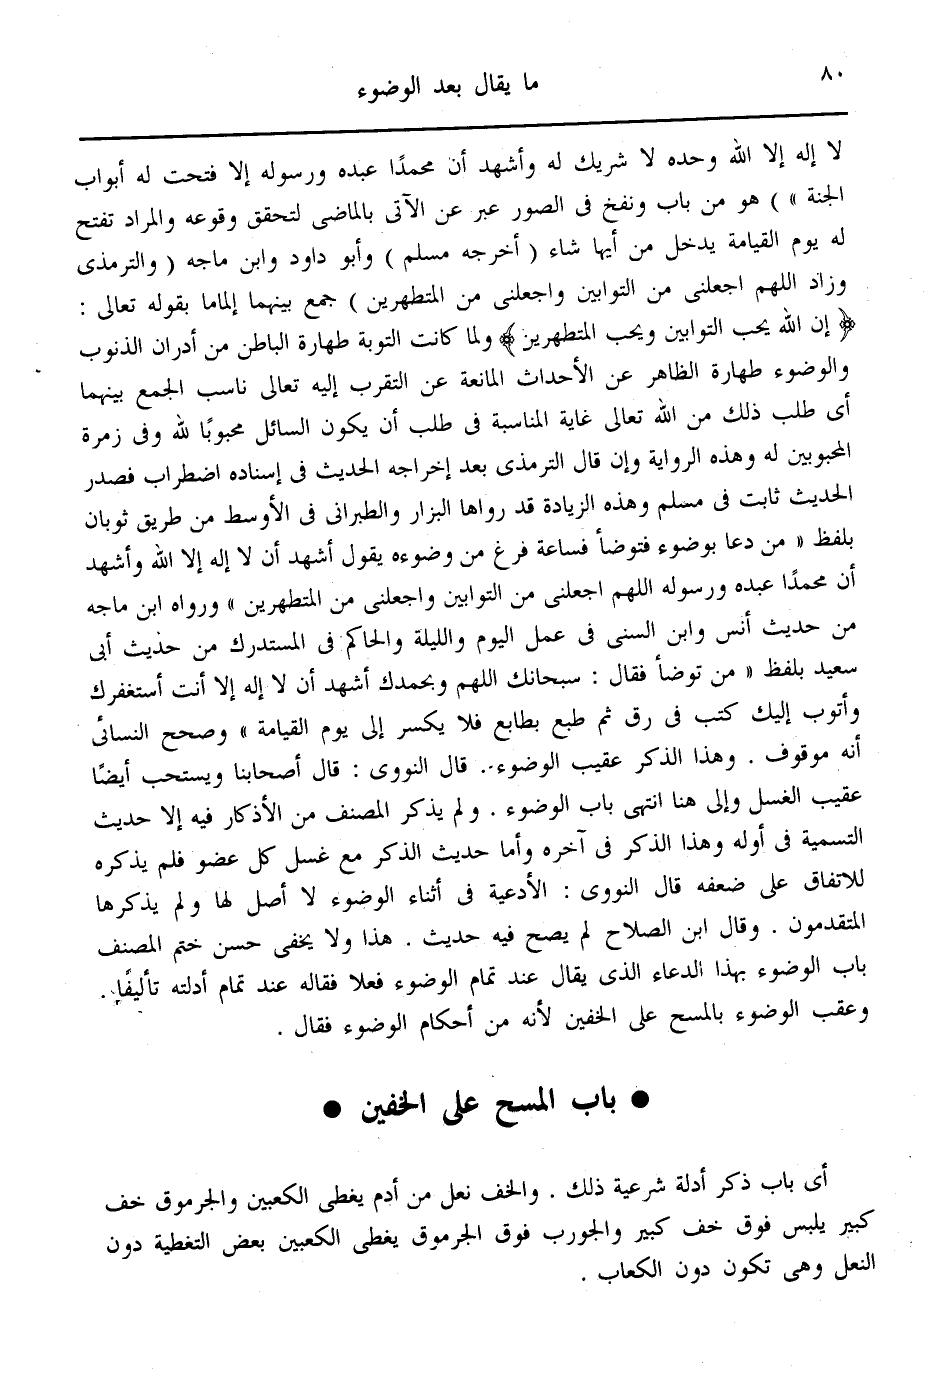 ٨٠
ما يقال بعد الوضوء
لا إله إلا الله وحده لا شريك له وأشهد أن محمدًا عبده ورسوله إلا فتحت له أبواب
الجنة » ) هو من باب ونفخ فى الصور عبر عن الآتى بالماضى لتحقق وقوعه والمراد تفتح
له يوم القيامة يدخل من أيها شاء ( أخرجه مسلم ) وأبو داود وابن ماجه ( والترمذى
وزاد اللهم اجعلنى من التوابين واجعلنى من المتطهرين ) جمع بينهما إلماما بقوله تعالى :
﴿ إن الله يحب التوابين ويحب المتطهرين ﴾ ولما كانت التوبة طهارة الباطن من أدران الذنوب
والوضوء طهارة الظاهر عن الأحداث المانعة عن التقرب إليه تعالى ناسب الجمع بينهما
أى طلب ذلك من الله تعالى غاية المناسبة فى طلب أن يكون السائل محبوبًا لله وفى زمرة
المحبوبين له وهذه الرواية وإن قال الترمذى بعد إخراجه الحديث فى إسناده اضطراب فصدر
الحديث ثابت فى مسلم وهذه الزيادة قد رواها البزار والطبرانى فى الأوسط من طريق ثوبان
بلفظ « من دعا بوضوء فتوضأ فساعة فرغ من وضوءه يقول أشهد أن لا إله إلا الله وأشهد
أن محمدًا عبده ورسوله اللهم اجعلنى من التوابين واجعلنى من المتطهرين » ورواه ابن ماجه
من حديث أنس وابن السنى فى عمل اليوم والليلة والحاكم فى المستدرك من حديث أبى
سعيد بلفظ « من توضأ فقال : سبحانك اللهم وبحمدك أشهد أن لا إله إلا أنت أستغفرك
وأتوب إليك كتب فى رق ثم طبع بطابع فلا يكسر إلى يوم القيامة » وصحح النسائى
أنه موقوف . وهذا الذكر عقيب الوضوء . قال النووى : قال أصحابنا ويستحب أيضًا
عقيب الغسل وإلى هنا انتهى باب الوضوء . ولم يذكر المصنف من الأذكار فيه إلا حديث
التسمية فى أوله وهذا الذكر فى آخره وأما حديث الذكر مع غسل كل عضو فلم يذكره
للاتفاق على ضعفه قال النووى : الأدعية فى أثناء الوضوء لا أصل لها ولم يذكرها
المتقدمون . وقال ابن الصلاح لم يصح فيه حديث . هذا ولا يخفى حسن ختم المصنف
باب الوضوء بهذا الدعاء الذى يقال عند تمام الوضوء فعلا فقاله عند تمام أدلته تأليفًا .
وعقب الوضوء بالمسح على الخفين لأنه من أحكام الوضوء فقال .
● باب المسح على الخفين ●
أى باب ذكر أدلة شرعية ذلك . والخف نعل من أدم يغطى الكعبين والجرموق خف
كبير يلبس فوق خف كبير والجورب فوق الجرموق يغطى الكعبين بعض التغطية دون
النعل وهى تكون دون الكعاب .